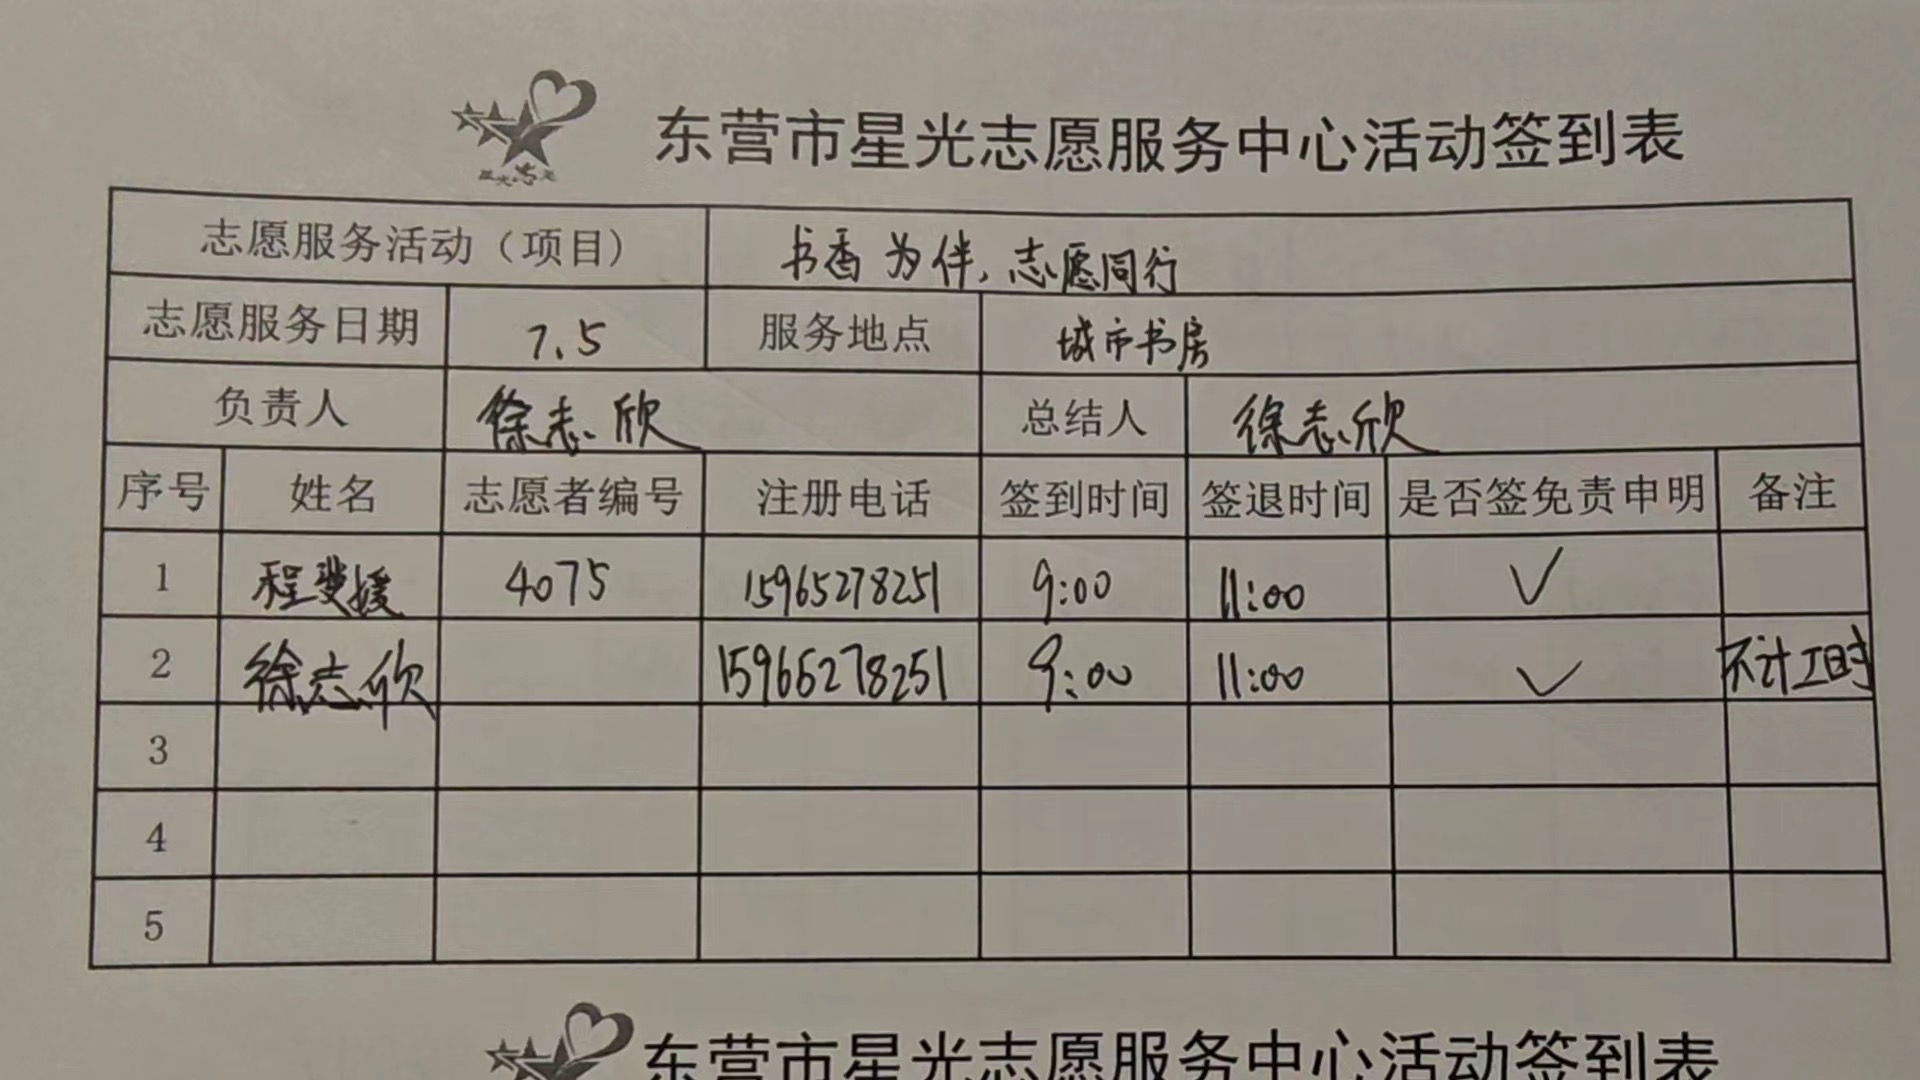 东营市星光志愿服务中心活动签到表
志愿服务活动（项目） 书香为伴，志愿同行
志愿服务日期 7.5 服务地点 城市书房
负责人 徐志欣 总结人 徐志欣
序号 姓名 志愿者编号 注册电话 签到时间 签退时间 是否签免责申明 备注
1 程斐媛 4075 15965278251 9:00 11:00 ✓
2 徐志欣 15965278251 9:00 11:00 ✓ 不计工时
3
4
5
东营市星光志愿服务中心活动签到表